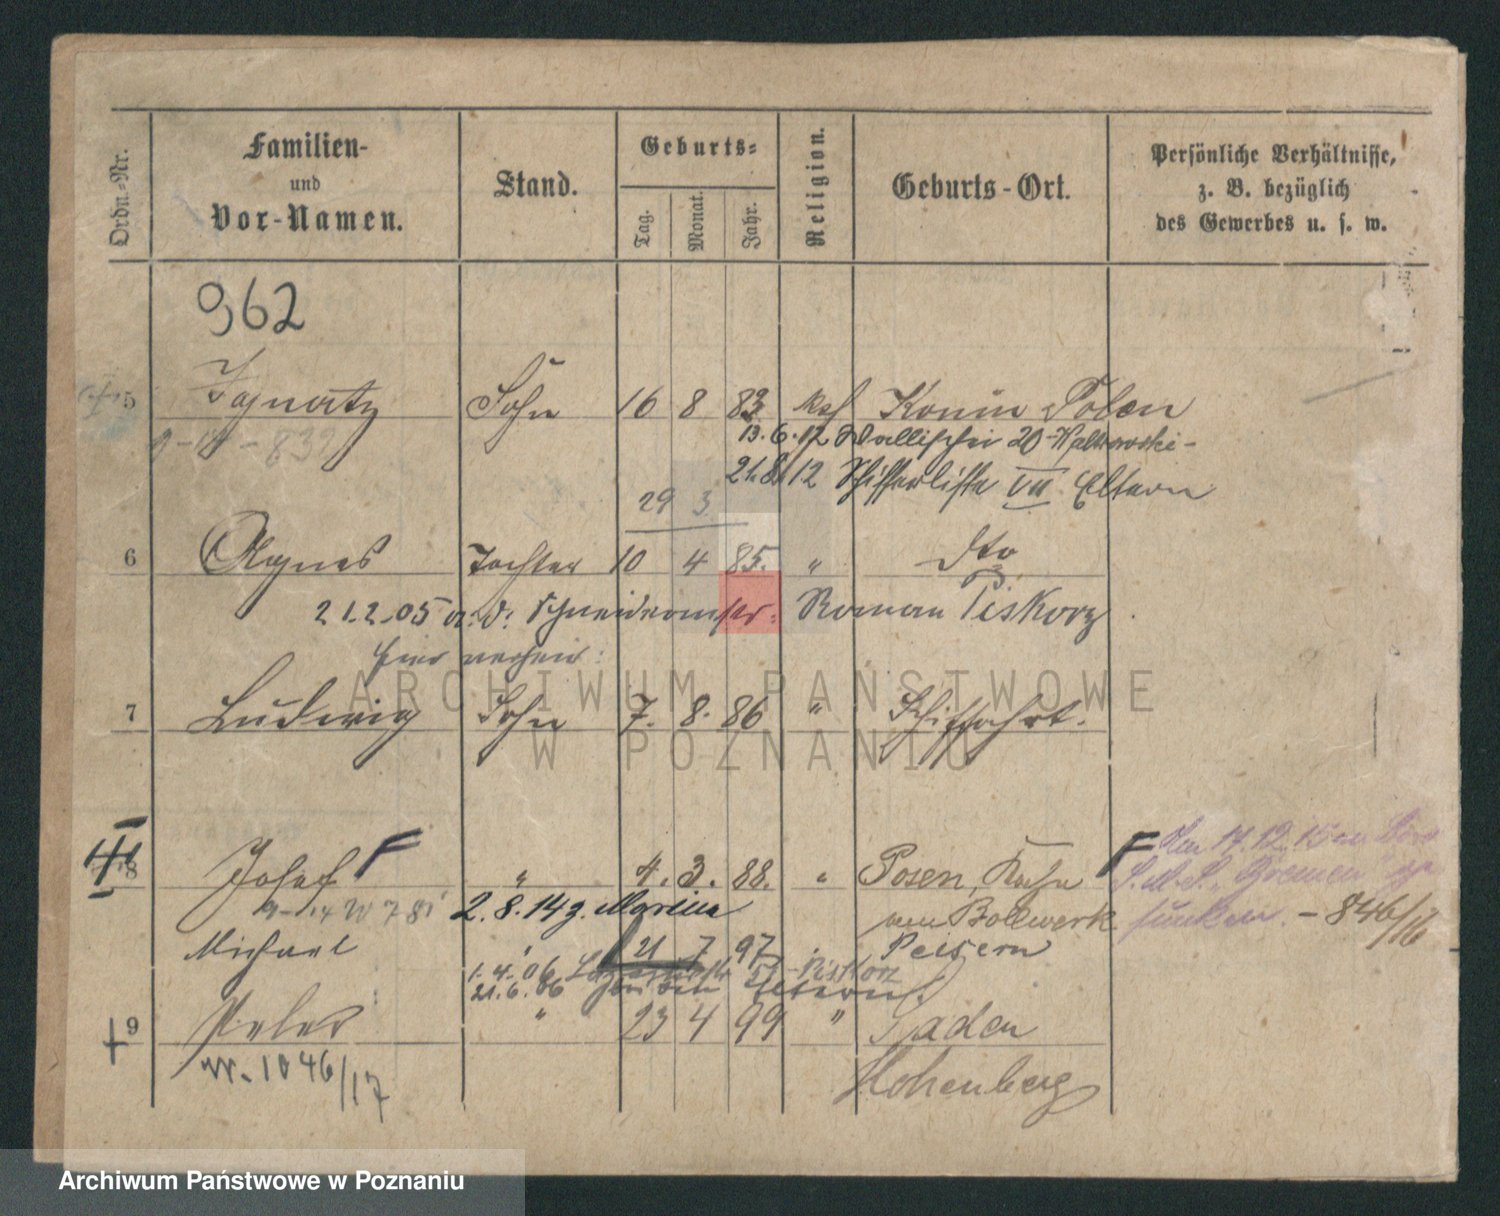 Ordn.-Nr.
Familien-
und
Vor-Namen.
Stand.
Geburts-
Tag.
Monat.
Jahr.
Religion.
Geburts-Ort.
Persönliche Verhältnisse,
z. B. bezüglich
des Gewerbes u. s. w.
962
5 Ignatz Sohn 16 8 83 kath Konin Polen
13.6.12 Wallischei 20
21.8.12 Schifferliste VII Eltern
29 3
6 Agnes Tochter 10 4 85. " dto
21.2.05 a. d. Schneidermstr. Roman Piskorz
hier verheir:
7 Ludwig Sohn 7. 8. 86 " Schiffahrt.
8 Josef F " 4. 3. 88. " Posen, Kahn
F Am 17.12.15
S.M.S. Bremen ge
sunken. - 846/16
2.8.14 z. Marine am Bollwerk
Michael " 21 7 97 " Peisern
1.4.06 Piskorz
21.6.06 Eltern
9 Peter " 23 4 99 " Haden
W. 1046/17
Hohenberg
ARCHIWUM PAŃSTWOWE
W POZNANIU
Archiwum Państwowe w Poznaniu